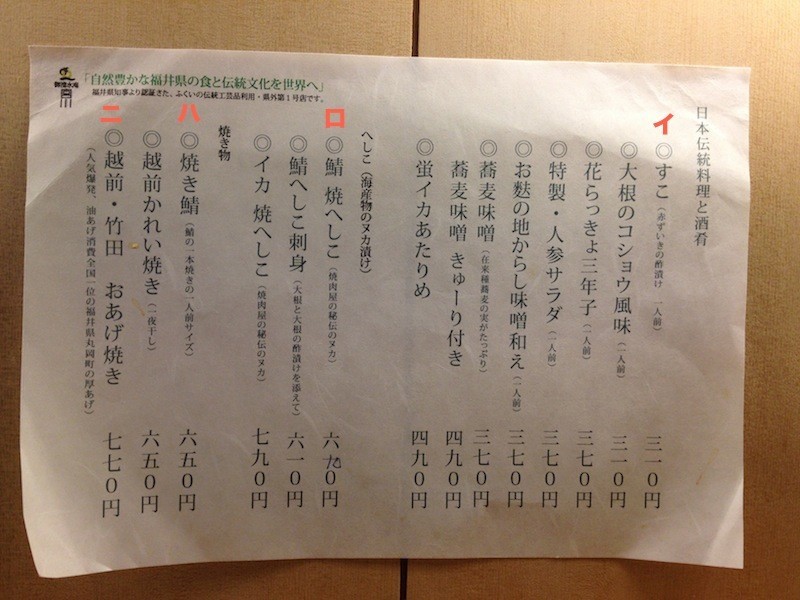 「自然豊かな福井県の食と伝統文化を世界へ」
福井県知事より認証さた、ふくいの伝統工芸品利用・県外第1号店です。
日本伝統料理と酒肴
イ
◎すこ（赤ずいきの酢漬け 一人前） 三一〇円
◎大根のコショウ風味（一人前） 三一〇円
◎花らっきょ三年子（一人前） 三七〇円
◎特製・人参サラダ（一人前） 三七〇円
◎お麩の地からし味噌和え（一人前） 三七〇円
◎蕎麦味噌（在来種蕎麦の実がたっぷり） 三七〇円
蕎麦味噌 きゅーり付き 四九〇円
◎蛍イカあたりめ 四九〇円
へしこ（海産物のヌカ漬け）
ロ
◎鯖 焼へしこ（焼肉屋の秘伝のヌカ） 六九〇円
◎鯖へしこ刺身（大根と大根の酢漬けを添えて） 六一〇円
◎イカ 焼へしこ（焼肉屋の秘伝のヌカ） 七九〇円
焼き物
ハ
◎焼き鯖（鯖の一本焼きの一人前サイズ） 六五〇円
◎越前かれい焼き（一夜干し） 六五〇円
ニ
◎越前・竹田 おあげ焼き 七七〇円
（人気爆発、油あげ消費全国一位の福井県丸岡町の厚あげ）